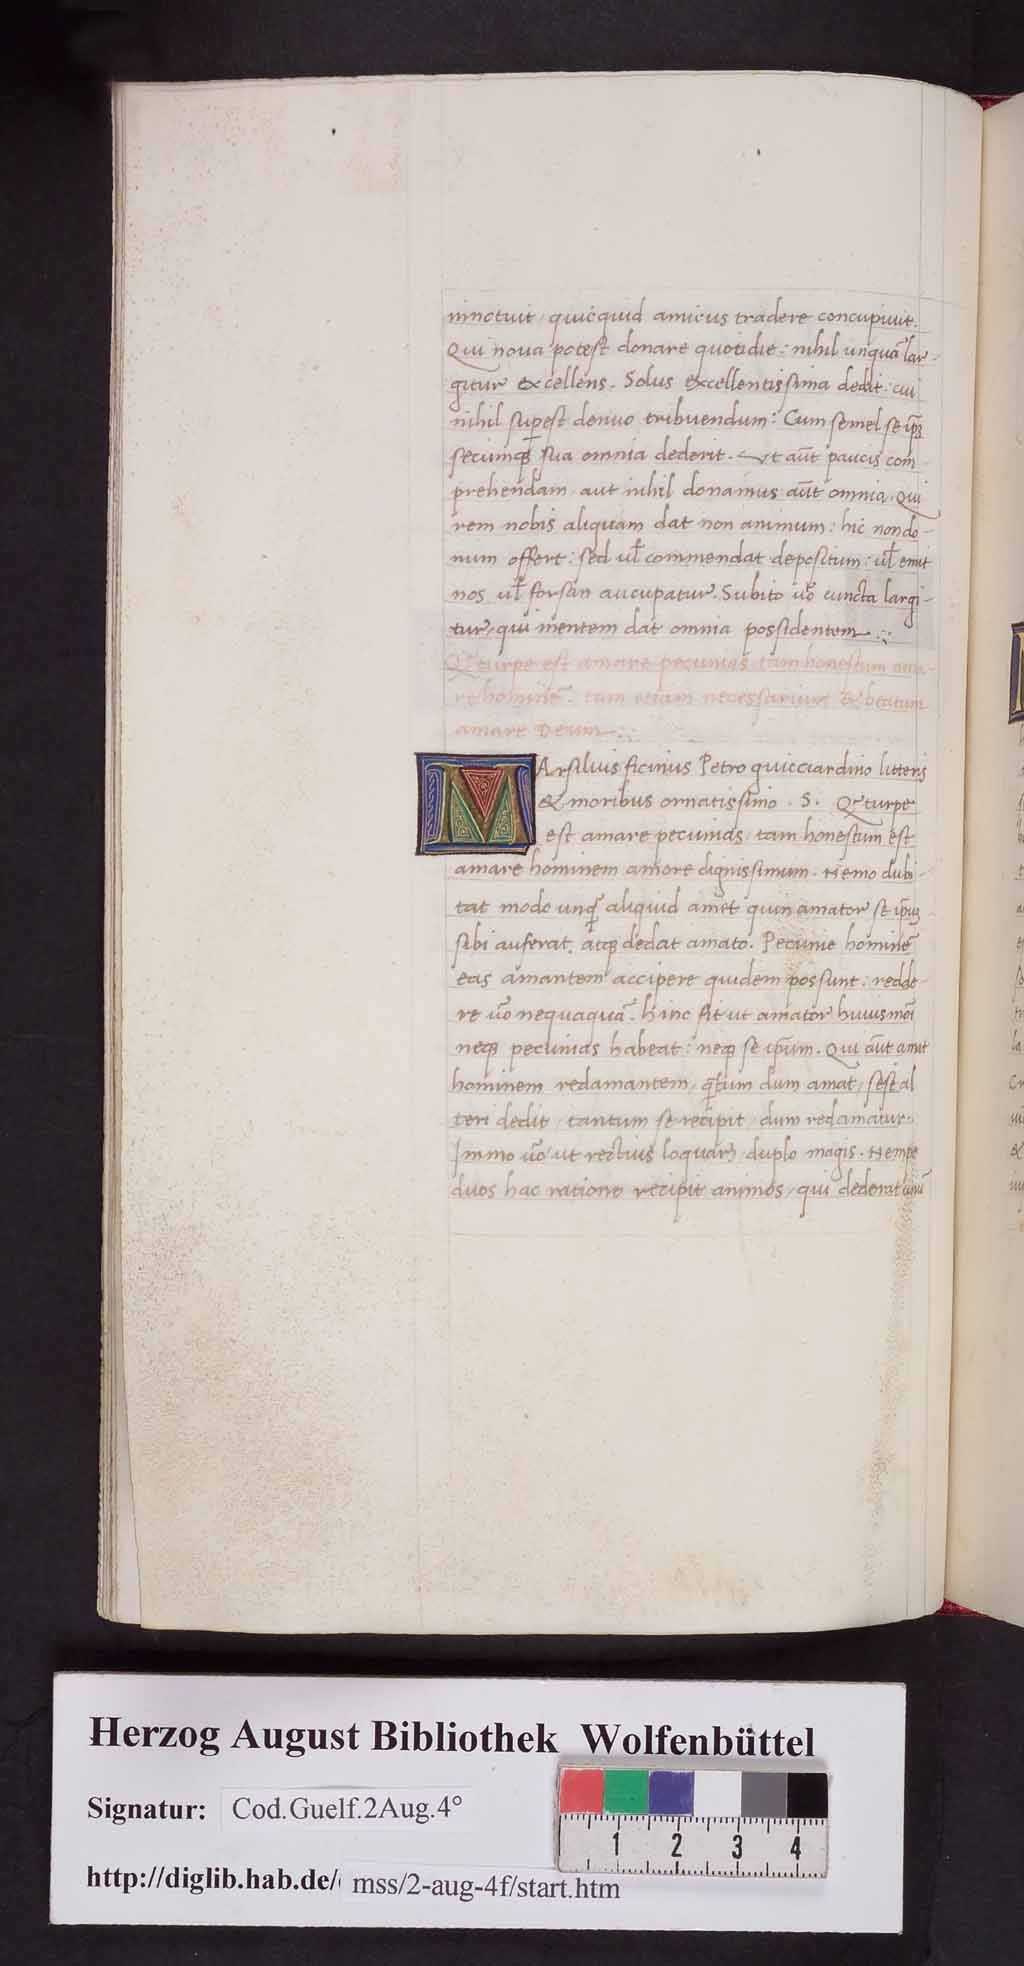 ninotuit / quicquid amicus tradere concupiuit.
Qui noua potest donare quotidie : nihil unquā lar-
gitur excellens. Solus excellentissima dedit : cui
nihil supest denuo tribuendum : Cum semel se ip̄ꝫ
secumqꝫ sua omnia dederit. Ut aūt paucis com-
prehendam aut nihil donamus aūt omnia. Qui
rem nobis aliquam dat non animum : hic non do-
num offert : sed ul̄ commendat depositum : ul̄ emit
nos ul̄ forsan aucupatur. Subito uō cuncta largi-
tur, qui mentem dat omnia possidentem .:.
Qꝫ turpe est amare pecunias tam honestum ama-
re hominē : tam etiam necessarium & beatum
amare Deum .:.
MArsilius ficinus Petro quicciardino litteris
& moribus ornatissimo . S. Qꝫ turpe
est amare pecunias, tam honestum est
amare hominem amore dignissimum. Nemo dubi-
tat modo unqꝫ aliquid amet quin amator se ip̄ꝫ
sibi auferat, atqꝫ dedat amato. Pecunie hominē
eas amantem accipere quidem possunt : redde-
re uō nequaquā. Hinc fit ut amator huiusmōi
neqꝫ pecunias habeat : neqꝫ se ip̄um. Qui aūt amat
hominem redamantem, qꝫtum dum amat / sese al
teri dedit / tantum se recipit / dum redamatur.
Immo uō ut rectius loquar duplo magis. Nempe
duos hac ratione recipit animos / qui dederat unū
Herzog August Bibliothek Wolfenbüttel
Signatur: Cod.Guelf.2Aug.4°
1 2 3 4
http://diglib.hab.de/ mss/2-aug-4f/start.htm